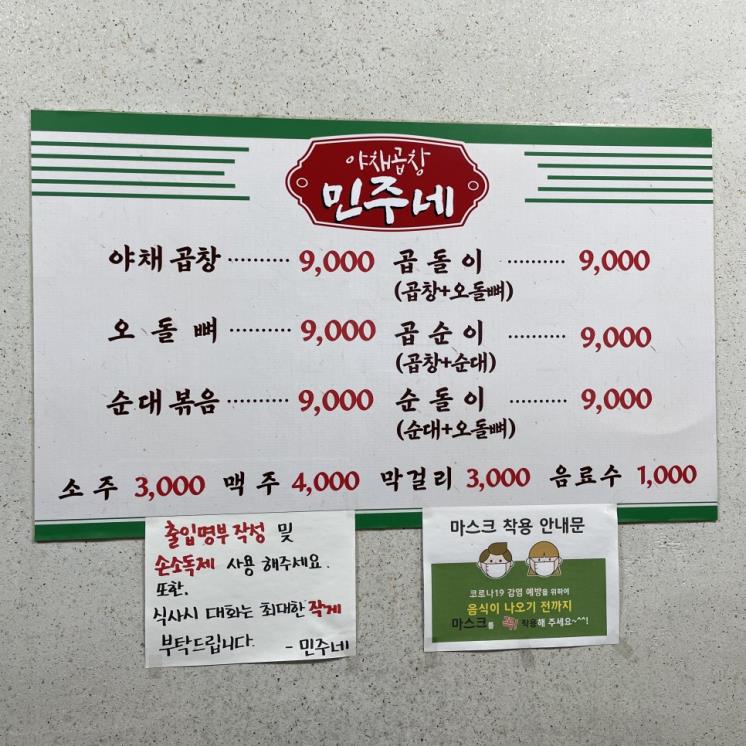 야채곱창
민주네
야채 곱창 ·········· 9,000 곱 돌 이 ·········· 9,000
(곱창+오돌뼈)
오 돌 뼈 ·········· 9,000 곱 순 이 ·········· 9,000
(곱창+순대)
순대 볶음 ·········· 9,000 순 돌 이 ·········· 9,000
(순대+오돌뼈)
소 주 3,000 맥 주 4,000 막걸리 3,000 음료수 1,000
출입명부 작성 및
손소독제 사용 해주세요.
또한,
식사시 대화는 최대한 작게
부탁드립니다.
- 민주네
마스크 착용 안내문
코로나19 감염 예방을 위하여
음식이 나오기 전까지
마스크를 꼭! 착용해 주세요~^^!